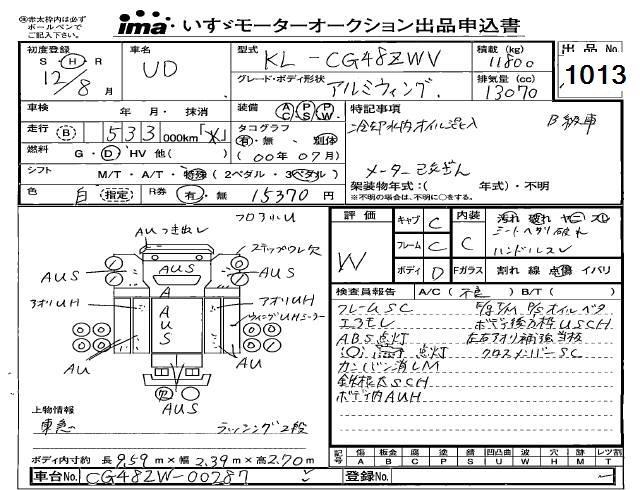 ※赤太枠内は必ず
ボールペンで
ご記入下さい。
ima いすゞモーターオークション出品申込書
初度登録
S・H・R
12/8月
車名
UD
型式
KL-CG48ZWV
積載 (kg)
11800
出品No.
1013
グレード・ボディ形状
アルミウィング
排気量 (cc)
13070
車検
年 月・ 抹消
装備
AC PS PW
特記事項
冷却水内オイル混入
B級車
走行 (B) 533 000km「*」
タコグラフ
有・無 別体
(00年07月)
燃料
G・D・HV 他( )
メーター改ざん
シフト
M/T・A/T・特殊(2ペダル・3ペダル)
架装物年式:( 年式)・不明
※不明の場合は、不明に○をする。
色
白 (指定)
R券
有・無 15370 円
評価
W
キャブ C
フレーム C
ボディ D
内装
C
汚れ 破れ ヤニ スレ
シートヘタリ破れ
ハンドルスレ
Fガラス 割れ 線 点傷 イバリ
フロアUU
AUつき出し
ステップワレ欠
AUS
AUS
AUS
アオリUH
アオリUH
AAUS
AU
AU
AUS
検査員報告
A/C(不良) B/T( )
フレームSC
エヨモレ
ABS点灯
点灯
カンバン消しM
鉄根太SCH
ボディ内AUH
E/g T/M P/Sオイルベタ
ボディ後方枠USCH
左右アオリ補強当板
クロスメンバーSC
上物情報
東急
ラッシング2段
ボディ内寸 長9.59m×幅2.39m×高2.70m
記号
傷 A
板金 B
腐 C
塗 P
錆 S
凹凸曲 U
波 W
穴 H
跡 M
レツ割 T
車台No. CG48ZW-00287
登録No.